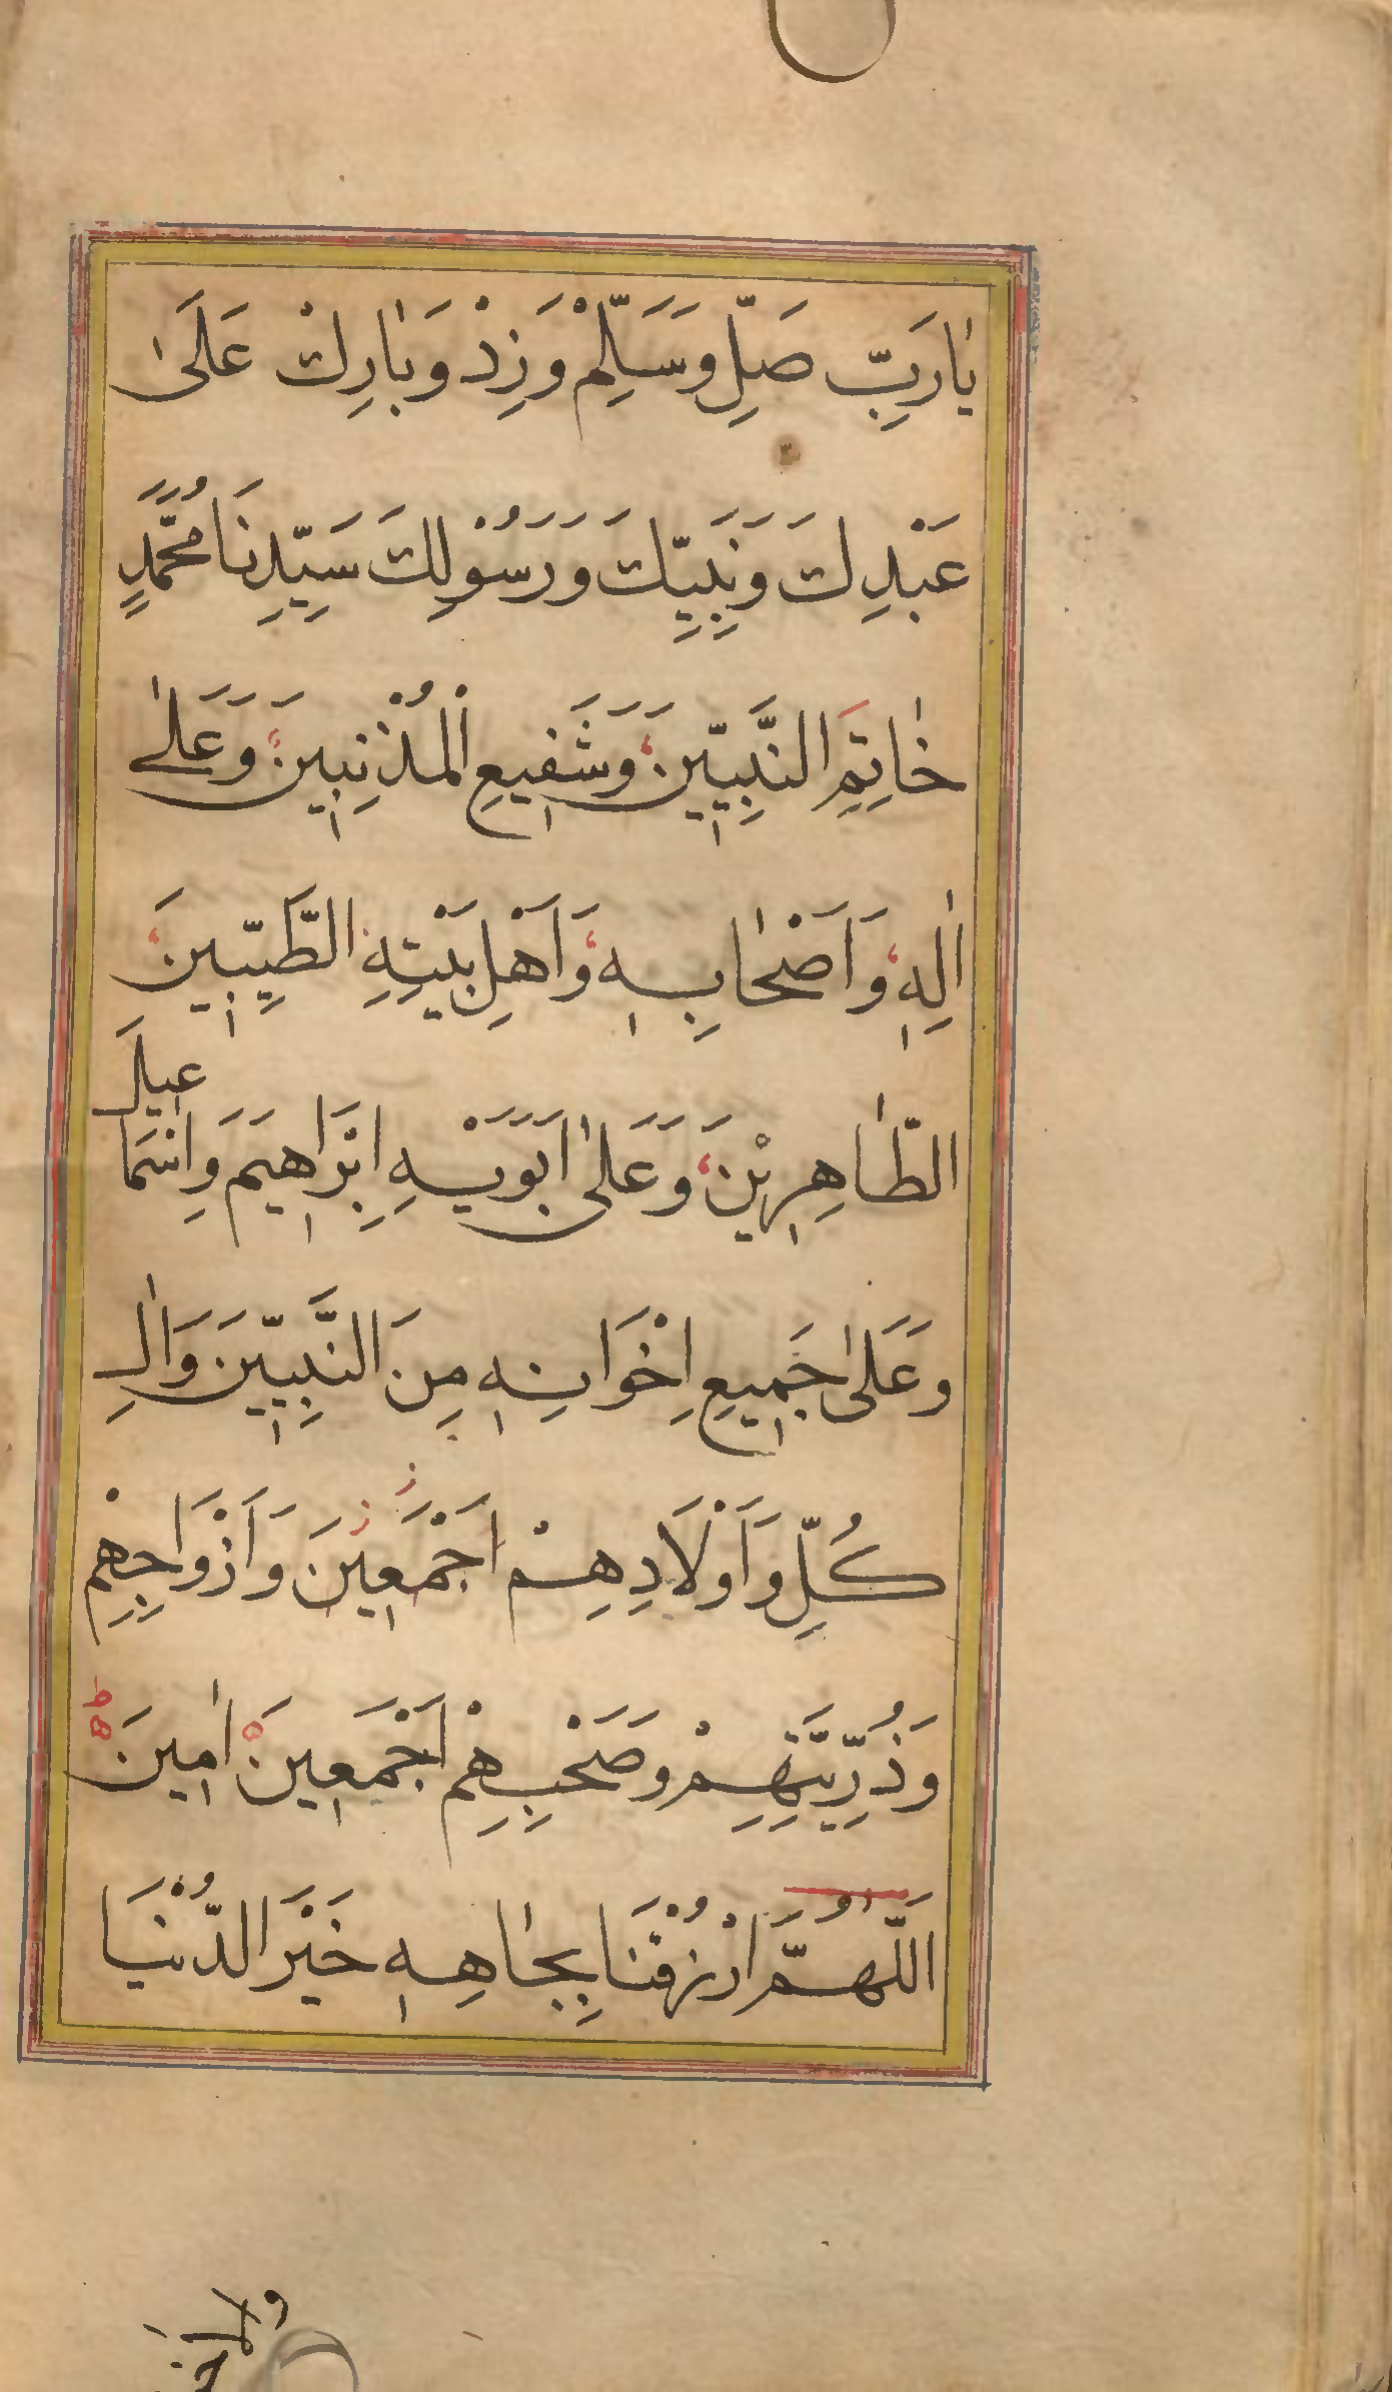 يَارَبِّ صَلِّ وَسَلِّمْ وَزِدْ وَبَارِكْ عَلَىٰ
عَبْدِكَ وَنَبِيِّكَ وَرَسُوْلِكَ سَيِّدِنَا مُحَمَّدٍ
خَاتِمَِ النَّبِيّٖينَ وَشَفِيعِ الْمُذْنِبٖينَ وَعَلٰى
اٰلِهٖ وَاَصْحَابِهٖ وَاَهْلِ بَيْتِهِ الطَّيِّبٖينَ
الطَّاهِرٖيْنَ وَعَلٰى اَبَوَيْهِ اِبْرَاهٖيمَ وَاِسْمَاعٖيلَ
وَعَلٰى جَمٖيعِ اِخْوَانِهٖ مِنَ النَّبِيّٖينَ وَاٰلِ
كُلٍّ وَاَوْلَادِهِمْ اَجْمَعٖينَ وَاَزْوَاجِهِمْ
وَذُرِّيَّتِهِمْ وَصَحْبِهِمْ اَجْمَعٖينَ اٰمٖينَ
اَللّٰهُمَّ ارْزُقْنَا بِجَاهِهٖ خَيْرَ الدُّنْيَا